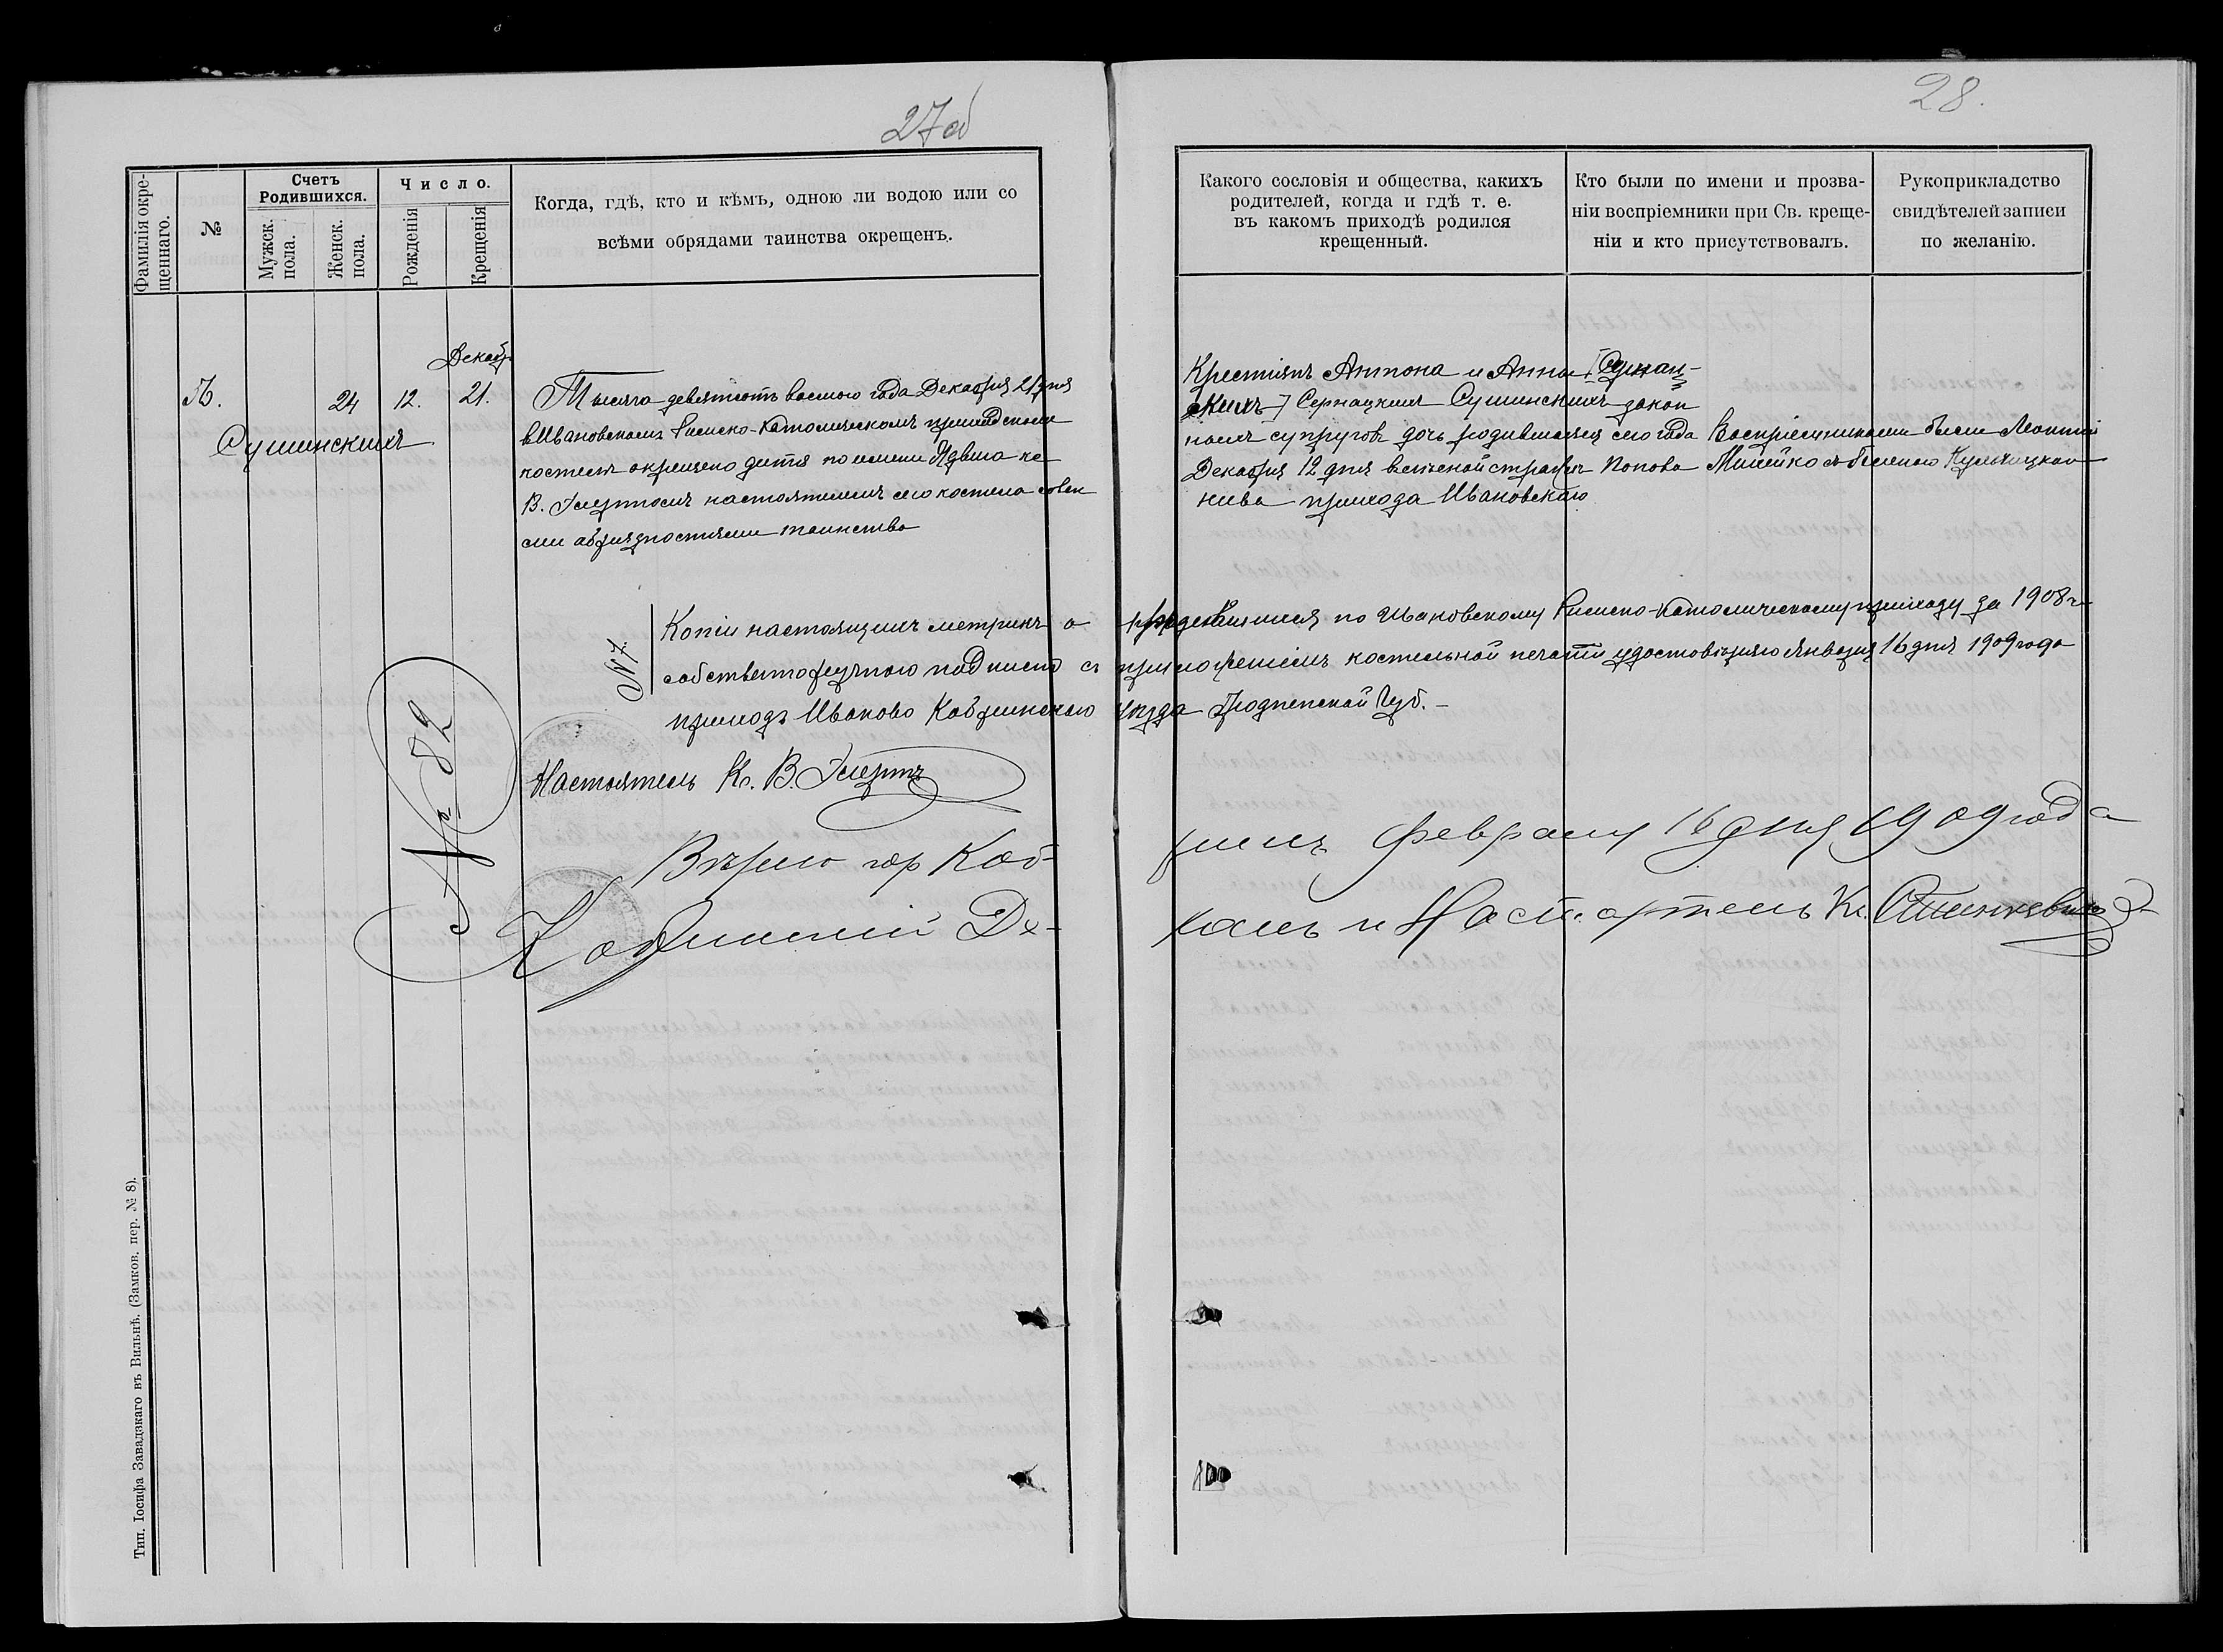 27об
28.
Фамилія окре-
щеннаго.
№
Счетъ
Родившихся.
Мужск.
пола.
Женск.
пола.
Число.
Рожденія
Крещенія
Когда, гдѣ, кто и кѣмъ, одною ли водою или со
всѣми обрядами таинства окрещенъ.
Какого сословія и общества, какихъ
родителей, когда и гдѣ т. е.
въ какомъ приходѣ родился
крещенный.
Кто были по имени и прозва-
ніи воспріемники при Св. креще-
ніи и кто присутствовалъ.
Рукоприкладство
свидѣтелей записи
по желанію.
Декабр.
24 12. 21.
Сушинскихъ
Тысяча девятсотъ восмого года Декабря 21 дня
в Ивановскомъ Римско-Католическомъ приходскомъ
костелѣ окрещено дитя по имени Ядвига кс
В. настоятелемъ сего костела совсѣ
ми абрядностями таинства
Крестьянъ Антона и Анны
Сушинскихъ закон
ныхъ супруговъ дочь родившаяся сего года
Декабря 12 дня в
прихода Ивановскаго
Воспріемниками были
Попова съ
№ 7.
Копіи настоящихъ метрикъ о родившихся по Ивановскому Римско-Католическому приходу за 1908 г.
собственоручною подписью с приложеніемъ костельной печати удостовѣряю Января 16 дня 1909 года
приходъ Иваново Кобринскаго уѣзда Гродненской Губ. –
Настоятель Кс. В.
№ 82
Вѣрно гор Коб-
ринъ Февраля 16 дня 1909 года
Кобринскій Де-
канъ и Настоятель Кс.
Тип. Іосифа Завадзкаго въ Вильнѣ. (Замков. пер. № 8).